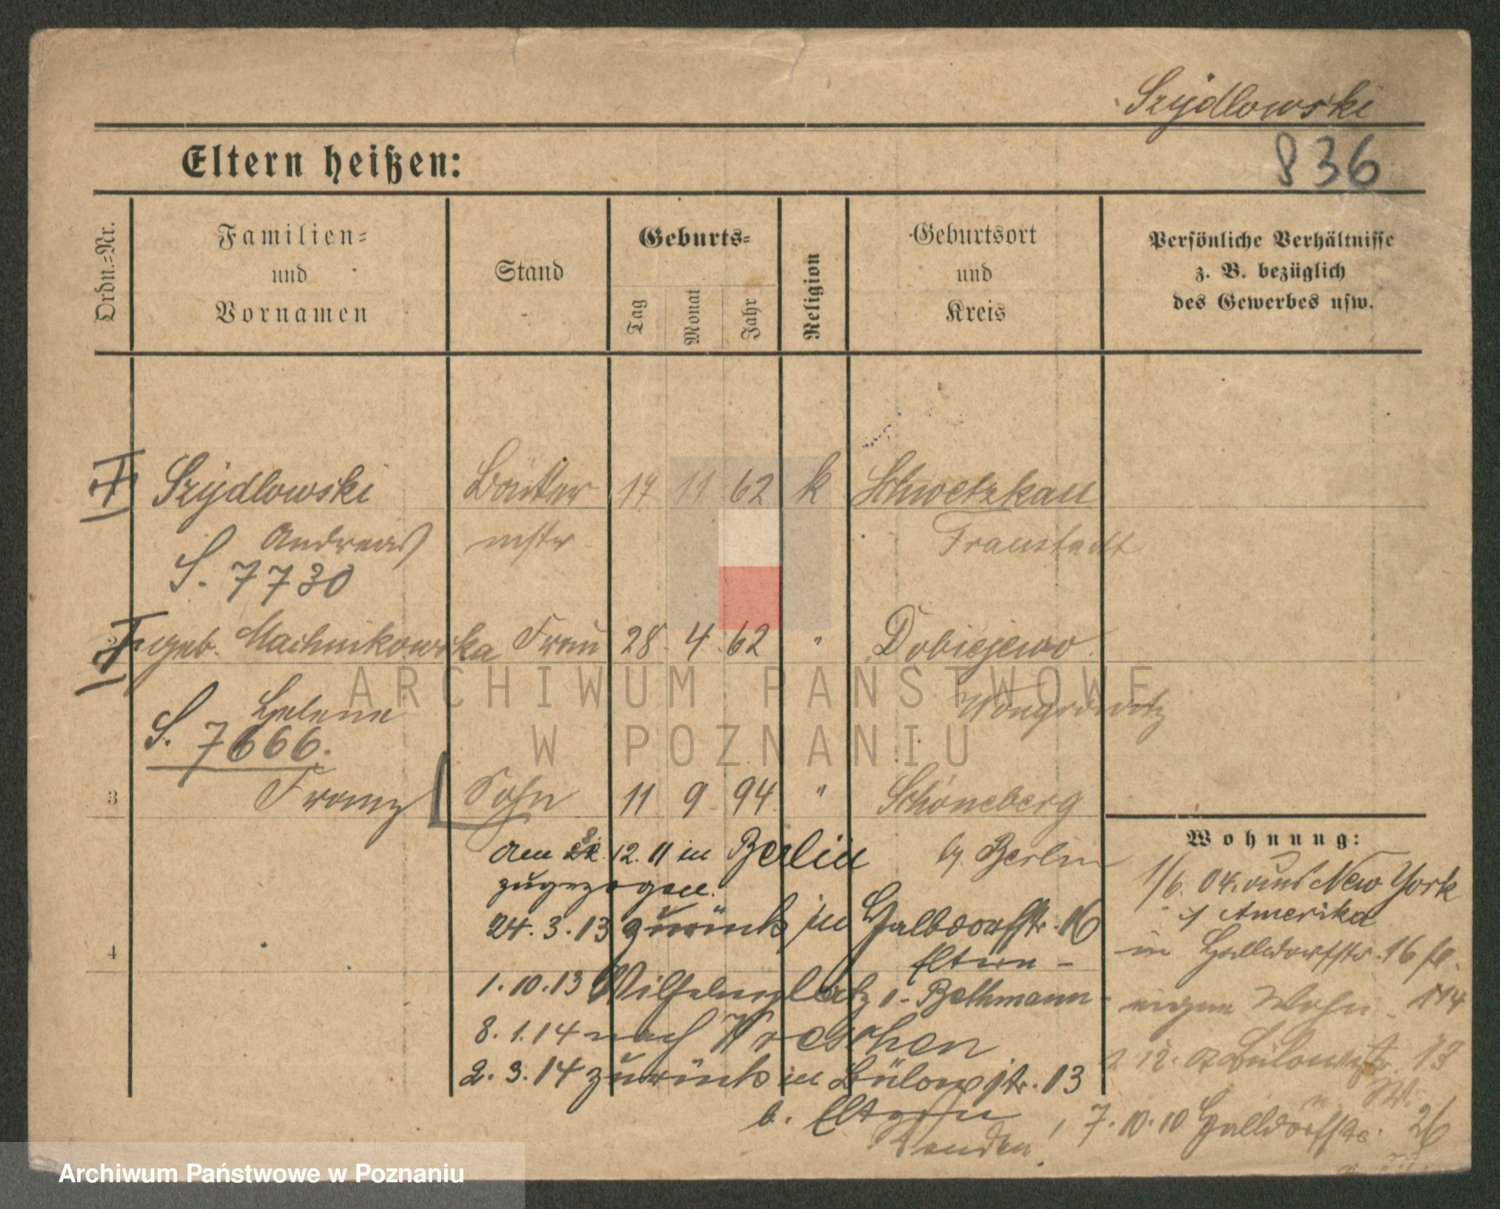 Szydlowski
Eltern heißen:
836
Ordn.=Nr.
Familien=
und
Vornamen
Stand
Geburts=
Tag
Monat
Jahr
Religion
Geburtsort
und
Kreis
Persönliche Verhältnisse
z. B. bezüglich
des Gewerbes usw.
Szydlowski 11 62 k Schwetzkau
Andreas Fraustadt
S. 7730
geb. Machnikowska Frau 28 4 62 " Dobiejewo
Helene Wongrowitz
S. 7666.
3 Franz Sohn 11 9 94 " Schöneberg
Berlin
am 12. 11 in Berlin
zugezogen.
24. 3. 13 zurück in Halldorffstr. 16
4
Eltern -
1. 10. 13 Wilhelmplatz Bethmann
8. 1. 14 nach Wreschen
2. 3. 14 zurück in Bülowstr. 13
b. Eltern
Wohnung:
1/6. 04. aus New York
Amerika
in Halldorffstr. 16
eigne Wohn
12. Bülowstr. 13
W.
7. 10. 10 Halldorffstr. 26
ARCHIWUM PAŃSTWOWE
W POZNANIU
Archiwum Państwowe w Poznaniu